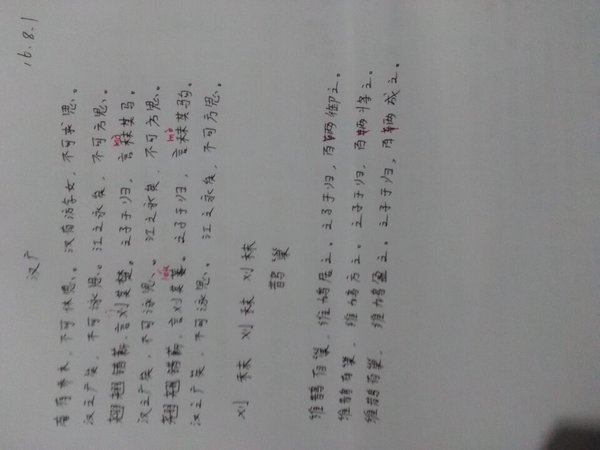 16.8.1
汉广
南有乔木,不可休思。汉有游女,不可求思。
汉之广矣,不可泳思。江之永矣,不可方思。
翘翘错薪,言刈其楚。之子于归,言秣其马。
汉之广矣,不可泳思。江之永矣,不可方思。
翘翘错薪,言刈其蒌。之子于归,言秣其驹。
汉之广矣,不可泳思。江之永矣,不可方思。
刈 秣 刈 秣 刈 秣
鹊巢
维鹊有巢,维鸠居之。之子于归,百辆御之。
维鹊有巢,维鸠方之。之子于归,百辆将之。
维鹊有巢,维鸠盈之。之子于归,百辆成之。